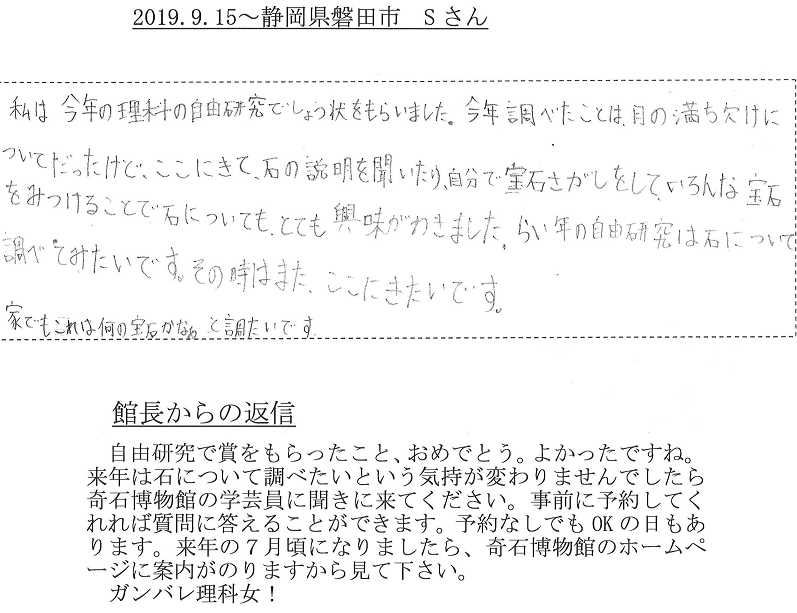 2019.9.15～静岡県磐田市　Sさん
私は 今年の理科の自由研究でしょう状をもらいました。今年調べたことは、月の満ち欠けに
ついてだったけど、ここにきて、石の説明を聞いたり、自分で宝石さがしをして、いろんな宝石
をみつけることで石についても、とても興味がわきました。らい年の自由研究は石について
調べてみたいです。その時はまた、ここにきたいです。
家でもこれは何の宝石かなぁ と調たいです。
館長からの返信
自由研究で賞をもらったこと、おめでとう。よかったですね。
来年は石について調べたいという気持が変わりませんでしたら
奇石博物館の学芸員に聞きに来てください。事前に予約してく
れれば質問に答えることができます。予約なしでもOKの日もあ
ります。来年の７月頃になりましたら、奇石博物館のホームペ
ージに案内がのりますから見て下さい。
ガンバレ理科女！